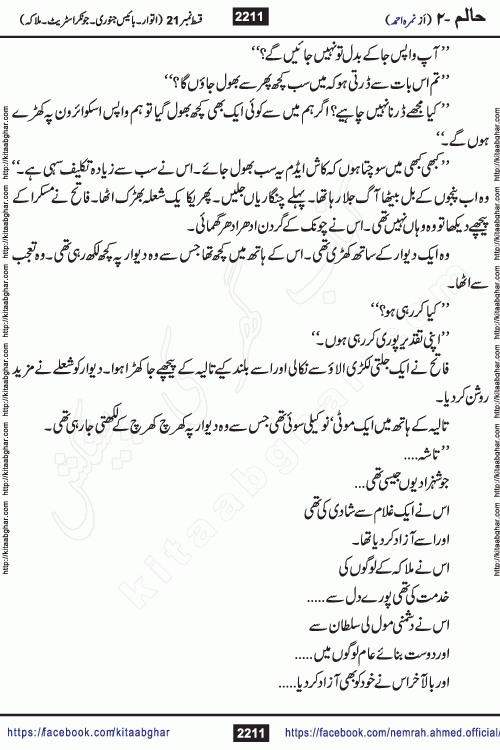 حالم -۲ (از نمرہ احمد)
2211
قسط نمبر 21 (اتوار۔ بائیس جنوری۔ جونکر اسٹریٹ۔ ملاکہ)
’’آپ واپس جا کے بدل تو نہیں جائیں گے؟‘‘
’’تم اس بات سے ڈرتی ہو کہ میں سب کچھ پھر سے بھول جاؤں گا؟‘‘
’’کیا مجھے ڈرنا نہیں چاہیے؟ اگر ہم میں سے کوئی ایک بھی کچھ بھول گیا تو ہم واپس اسکوائر ون پہ کھڑے
ہوں گے۔‘‘
’’کبھی کبھی میں سوچتا ہوں کہ کاش ایڈم یہ سب بھول جائے۔ اس نے سب سے زیادہ تکلیف سہی ہے۔‘‘
وہ اب پنجوں کے بل بیٹھا آگ جلا رہا تھا۔ پہلے چنگاریاں جلیں۔ پھر یکایک شعلہ بھڑک اٹھا۔ فاتح نے مسکرا کے
پیچھے دیکھا تو وہ وہاں نہیں تھی۔ اس نے چونک کے گردن ادھر ادھر گھمائی۔
وہ ایک دیوار کے ساتھ کھڑی تھی۔ اس کے ہاتھ میں کچھ تھا جس سے وہ دیوار پہ کچھ لکھ رہی تھی۔ وہ تعجب
سے اٹھا۔
’’کیا کر رہی ہو؟‘‘
’’اپنی تقدیر پوری کر رہی ہوں۔‘‘
فاتح نے ایک جلتی لکڑی الاؤ سے نکالی اور اسے بلند کیے تالیہ کے پیچھے جا کھڑا ہوا۔ دیوار کو شعلے نے مزید
روشن کر دیا۔
تالیہ کے ہاتھ میں ایک موٹی‘ نوکیلی سوئی تھی جس سے وہ دیوار پہ کھرچ کھرچ کے لکھتی جا رہی تھی۔
’’تاشہ....
جو شہزادیوں جیسی تھی...
اس نے ایک غلام سے شادی کی تھی
اور اسے آزاد کر دیا تھا۔
اس نے ملاکہ کے لوگوں کی
خدمت کی تھی پورے دل سے.....
اس نے دشمنی مول لی سلطان سے
اور دوست بنائے عام لوگوں میں.....
اور بالآخر اس نے خود کو بھی آزاد کر دیا.....
https://facebook.com/kitaabghar
2211
https://facebook.com/nemrah.ahmed.official/
http://kitaabghar.com http://kitaabghar.com http://kitaabghar.com http://kitaabghar.com http://kitaabghar.com http://kitaabghar.com
http://kitaabghar.com http://kitaabghar.com http://kitaabghar.com http://kitaabghar.com http://kitaabghar.com http://kitaabghar.com
کتاب گھر کی پیشکش
kitaabghar.com